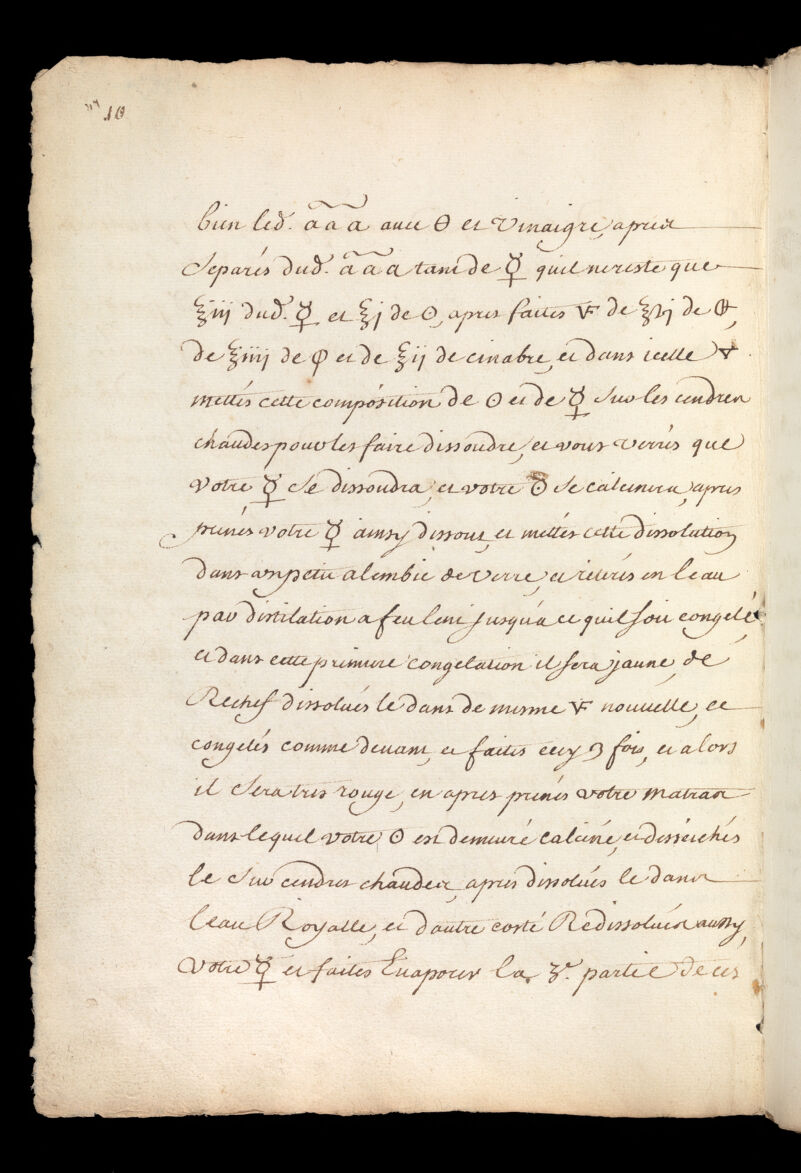 10
bien led. ãã a avec 🜔 et Vinaigre, apres
Separés dud. ãã a tant de ☿ quil ne reste que
℥iij dud. ☿ et ℥j de ☉, apres faites 🜅 de ℥vj de 🜖,
de ℥iiij de 🜕 et de ℥ij de cinabre, et dans icelle 🜅
mettés cette composition de ☉ et de ☿ sur les cendres
chaudes pour les faire dissoudre, et vous verrés que
votre ☿ se dissoudra, et votre ☉ se calcinera, apres
prenés votre ☿ ainsy dissout, et mettés cette dissolution
dans un petit alembic de verre, et retirés en leau
par distilation a feu lent jusqu'a ce quil soit congelé,
et dans cette premiere congelation il sera jaune, de
Rechef dissolvés le dans de mesme 🜅 nouvelle, et
congelés comme devant, et faites cecy 3 fois, et alors
il sera tres rouge, en apres prenés votre matras
dans lequel votre ☉ est demeuré calciné, et desseichés
le sur cendres chaudes, apres dissolvés le dans
leau Royalle, et d'autre costé Redissolvés aussy,
votre ☿ et faites Evaporer la 3e. partie de ces